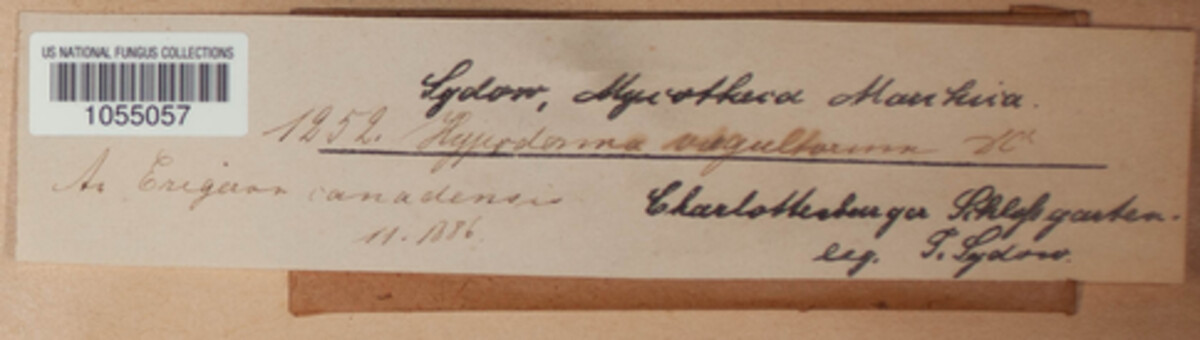 US NATIONAL FUNGUS COLLECTIONS
1055057
Sydow, Mycotheca Marchica.
1252. Hypoderma virgultorum DC
An Erigeron canadensis
11. 1886.
Charlottenburger Schloßgarten.
leg. P. Sydow.